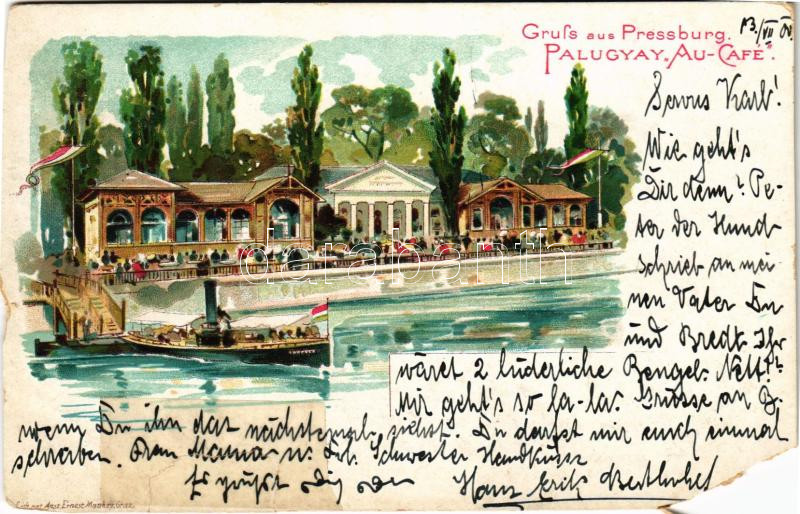 Gruss aus Pressburg.
PALUGYAY „AU-CAFÉ".
13./VII 00.
Servus Karl!
Wie geht's
Dir denn? Pe-
ter der Hund
schrieb an mei-
nen Vater Du
und Bredt. Ihr
wäret 2 lüderliche Bengel. Nett!?
Mir geht's so la-la. Grüsse an B.
wenn Du ihn das nächstemal siehst. Du darfst mir auch einmal
schreiben. Deiner Mama u. Frl. Schwester Handküsse
Es grüßt Dich Dein Hans Erich
darabanth
Lith. art. Anst. Ernest Matthey, Graz.